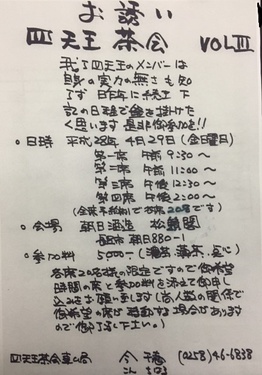 お誘い
四天王 茶会 VOL Ⅲ
我々四天王のメンバーは
自身の実力の無さも知
らず 昨年に続き 下
記の日程で釜を掛けた
く思います 是非御参加を!!
○日時 平成28年4月29日(金曜日)
第一席 午前 9:30〜
第二席 午前 11:00〜
第三席 午後 12:30〜
第四席 午後 2:00〜
(全席 各席20名です)
○会場 朝日酒造 松籟閣
長岡市朝日880-1
○参加料 5,000- (濃茶・薄茶・点心)
各席20名様の限定ですので御希望
時間の席と参加料を添えて御申し
込みをお願い致します(出人数の関係で
御希望の席が移動する場合があります
ので御了承下さい。)
四天王茶会事ム局 今 (0258)46-6838
こん